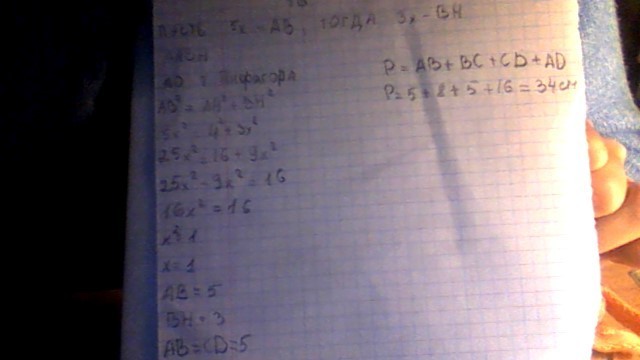 Пусть 5x - AB, тогда 3x - BH
По т. Пифагора
AB² = AH² + BH²
5x² = 4² + 3x²
25x² = 16 + 9x²
25x² - 9x² = 16
16x² = 16
x² = 1
x = 1
AB = 5
BH = 3
AB = CD = 5
P = AB + BC + CD + AD
P = 5 + 8 + 5 + 16 = 34 см